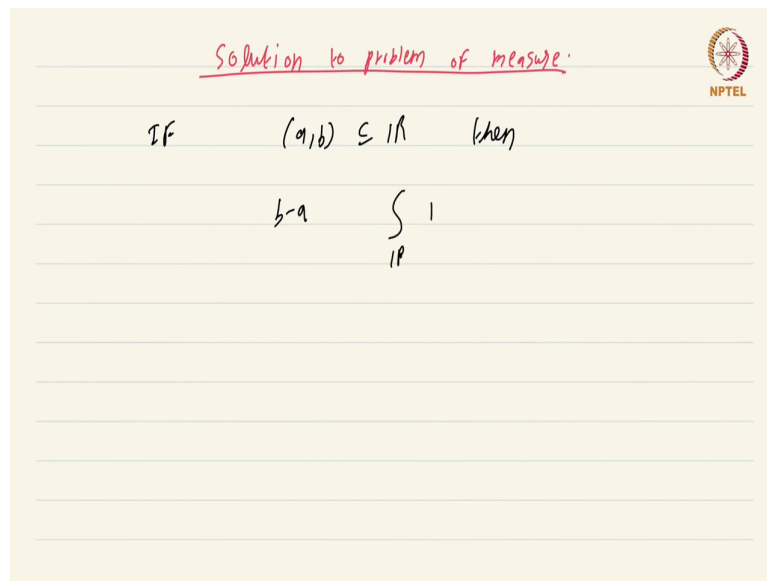 Solution to problem of measure.
NPTEL
IF (a,b) ⊆ IR then
b-a ∫ 1
IR